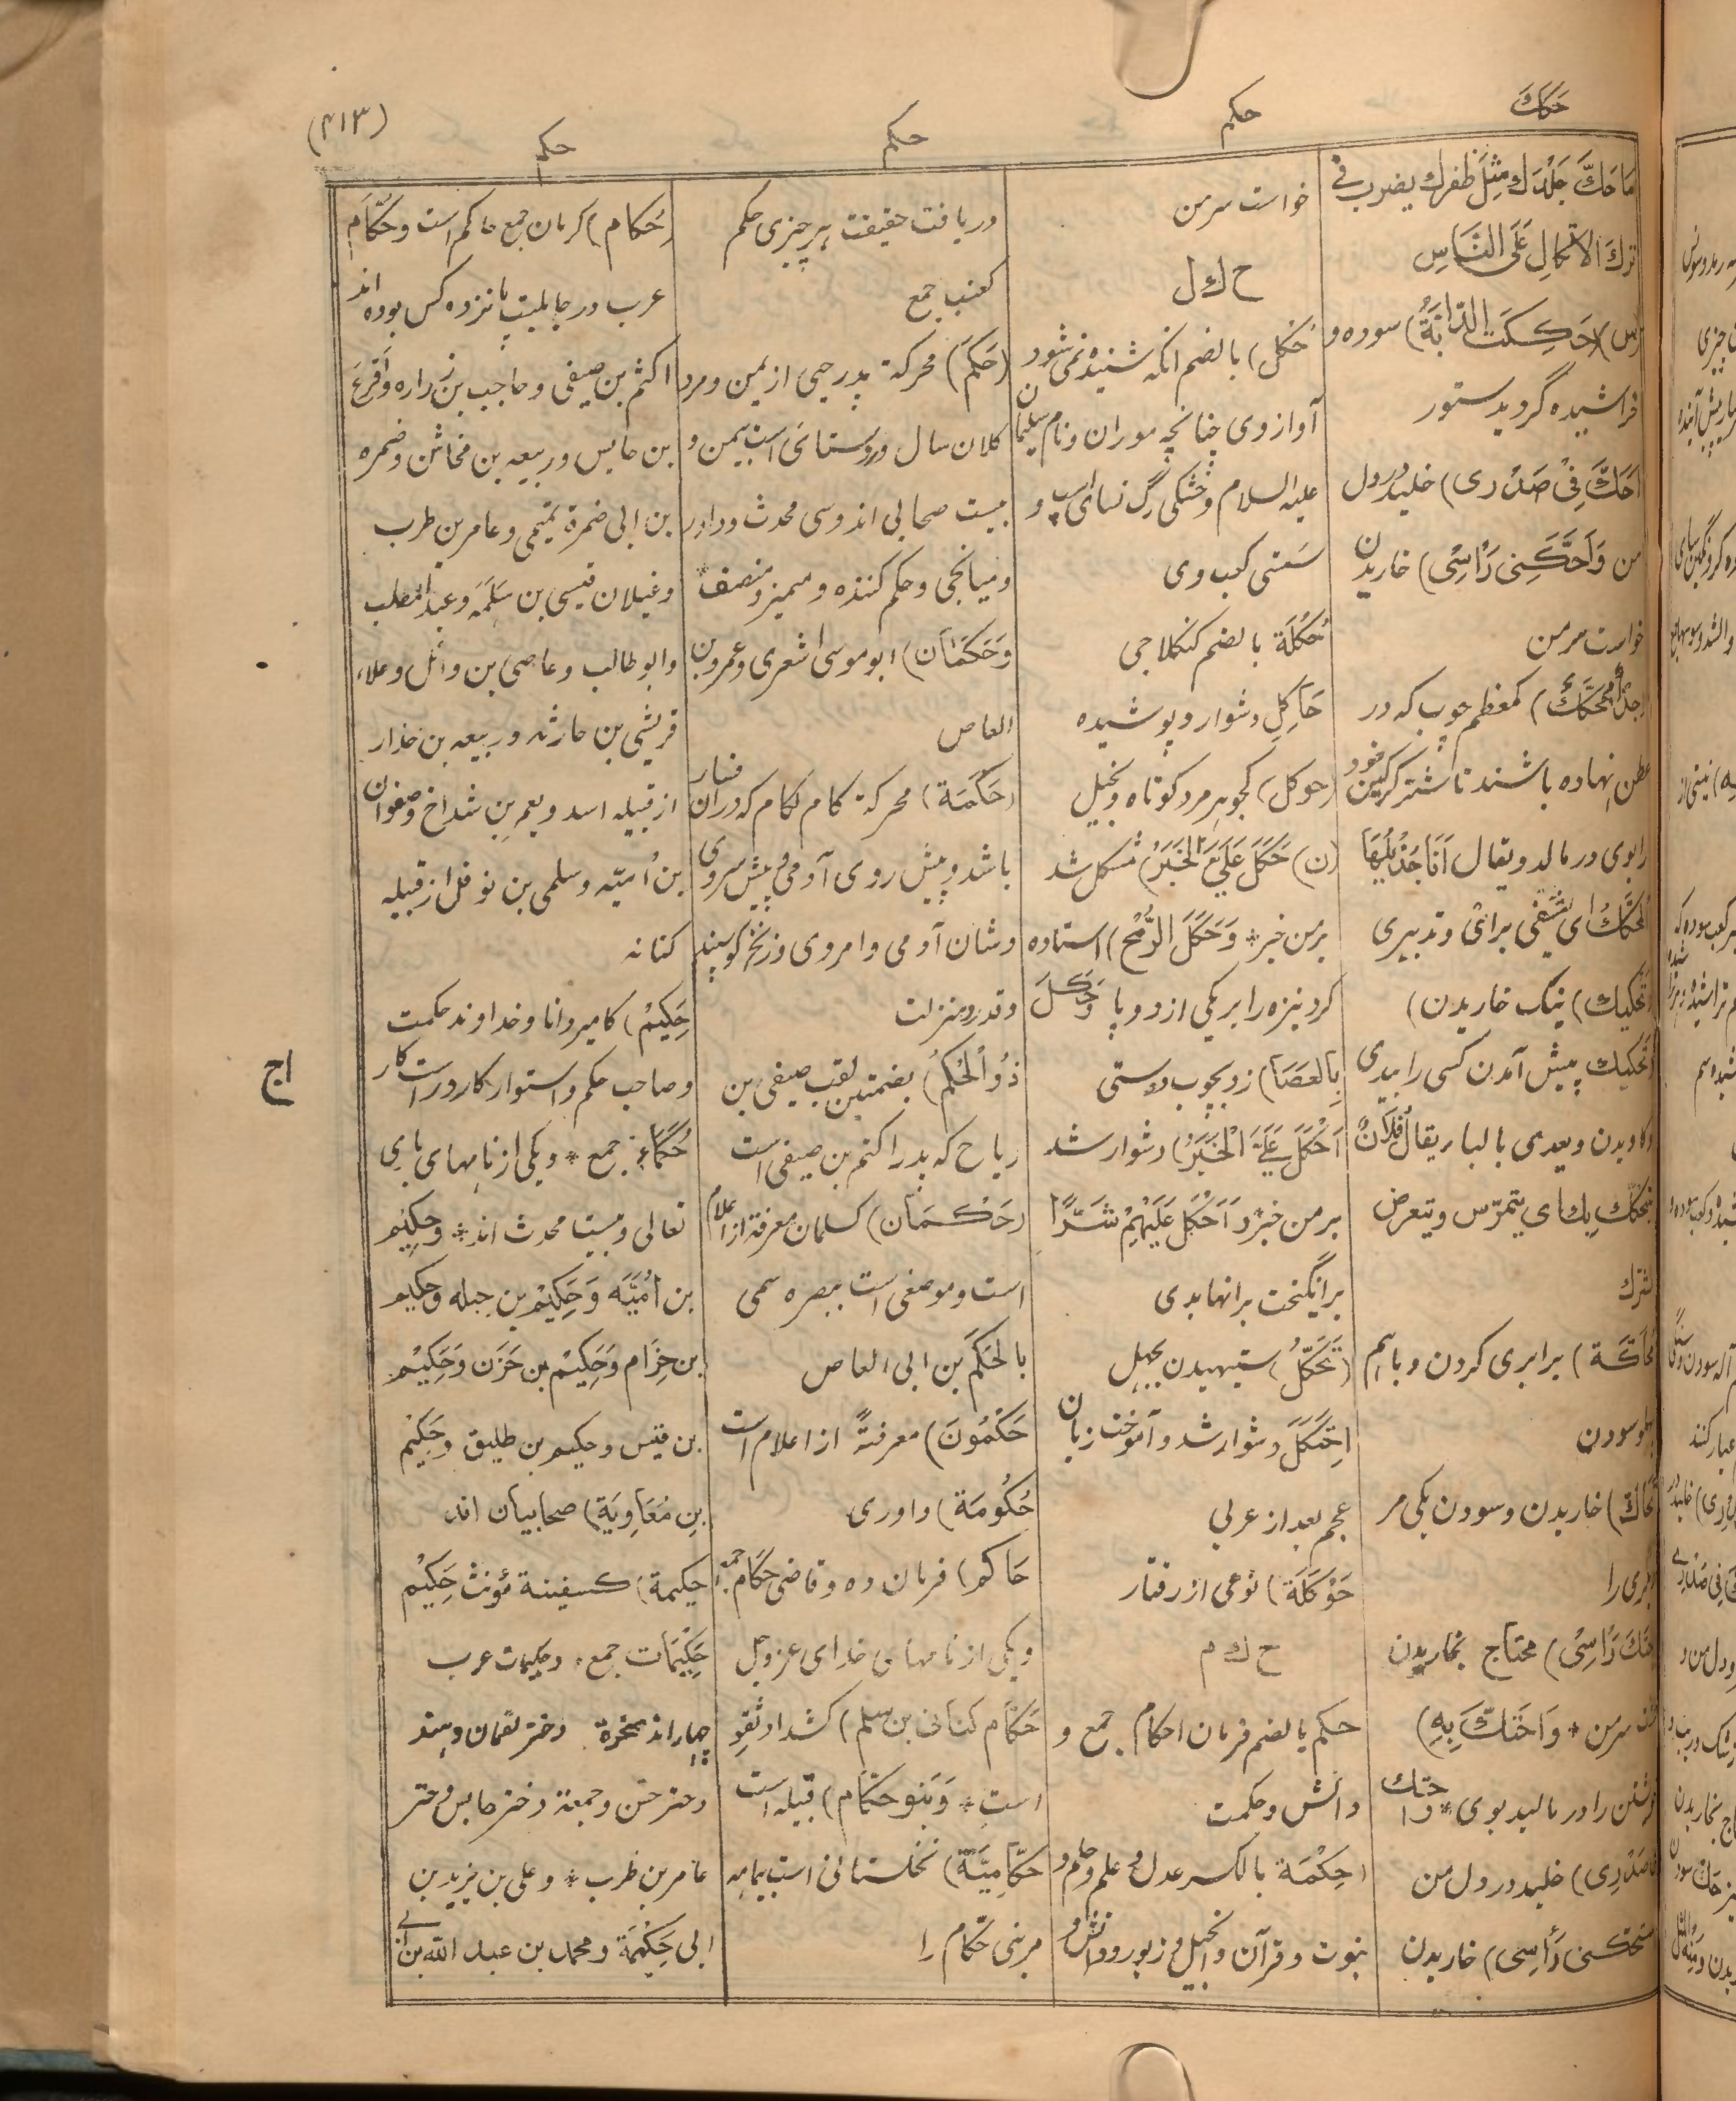 حَكَكَ
حکم
حکم
حکم
(۴۱۳)
مَا حَكَّ جِلْدَكَ مِثْلُ ظفرك یضرب فی
تركَ الاتكالِ عَلَى النَّاسِ
(س) (حَكِكَت الدَّابَّةُ) سوده و
خراشیده گردید ستور
(اَحَكَّ فِیْ صَدْری) خلید در دل
من وَاَحَكَّنِی رَاْسِیْ) خاریدن
خواست سر من
(جِذْلٌ مُحَكَّكٌ) کمعظم چوب که در
عطن نهاده باشند تا شتر گرگین خود
را بوی در مالد و یقال اَنَا جُذَیْلُهَا
المُحَكَّكُ ای یُشْتَفٰی برائی و تدبیری
(تَحْکیك) نیک خاریدن)
(تَحکیك پیش آمدن کسی را ببدی
و کاویدن و یعدی بالباء یقال فُلَانٌ
یتحکّك بك ای یتمرّس و یتعرض
لشرك
مُحَاکَّة) برابری کردن و باهم
پهلو سودن
تَحَاكّ) خاریدن و سودن یکی مر
دیگری را
رَاسِیْ) محتاج بخاریدن
سر من * وَاحْتَكَّ بِهِ)
خویشتن را در مالید بوی * واحتك
صَدْرِی) خلید در دل من
رَأسِی) خاریدن
خواست سر من
ح ك ل
حُکْل) بالضم انکه شنیده نمی شود
آواز وی چنانچه موران و نام سلیمان
علیه السلام و خشکی رگ نسای اسپ و
سَستی کعب وی
حُکْلَة بالضم کنکلاجی
حَاکِل دشوار و پوشیده
(حوکل) کجوهر مرد کوتاه و بخیل
(ن) حَکَلَ عَلَیَّ الْخَبَرُ) مشکل شد
بر من خبر * وَحَکَلَ الرُّمْحَ) استاده
کرد نیزه را بر یکی از دو پا وَحَکَلَ
بِالعَصَا) زد بچوب دستی
اَحْکَلَ عَلَیَّ الْخَبَرُ) دشوار شد
بر من خبر و اَحْکَلَ عَلَیْهِمْ شَرًّا
برانگیخت برانها بدی
(تَحَکُّل) ستیهیدن بجهل
اِحْتَکَلَ دشوار شد و آموخت زبان
عجم بعد از عربی
حَوْکَلَة) نوعی از رفتار
ح ك م
حکم بالضم فرمان احکام جمع و
دانش و حکمت
(حِکْمَة بالکسر عدل و علم و حلم و
نبوت و قرآن و انجیل و زبور و دانش و
دریافت حقیقت هر چیزی حکم
کعنب جمع
(حَکَمَ) محرکة پدر حیی از یمن و مرد
کلان سال و روستائی است بیمن و
بیست صحابی اند و سی محدث و داور
و میانجی و حکم کننده و ممیز و منصف
وَحَکَمَان) ابو موسی اشعری و عمرو بن
العاص
(حَکَمَة) محرکة کام لگام که دران فسار
باشد و پیش روی آدمی و پیش سر وی
و شان آدمی و امر وی و زنخ گوسپند
و قدر و منزلت
ذُو الْحُکُمْ) بضمتین لقب صیفی بن
رباح که پدر اکثم بن صیفی است
(حَکْمَان) کسلمان معرفة از اعلام
است و موضعی است ببصره سمی
بالحَکَم بن ابی العاص
حَکْمُونَ) معرفةً از اعلام است
حُکُومَة) داوری
حَاکم) فرمان ده و قاضی حُکّام جمع
و یکی از نامهای خدای عز و جل
حَکّام کنانی بن سلم) کشداد ثقه
است * وَبَنو حَکَّام) قبیله است
حَکّامِیَّة) نخلستانی است بیمامه
مر بنی حَکّام را
(حُکّام) کرمان جمع حاکم است و حُکّام
عرب در جاهلیت پانزده کس بوده اند
اکثم بن صیفی و حاجب بن زراره و اَقرع
بن حابس و ربیعه بن مخاشن و ضمره
بن ابی ضمرة تمیمی و عامر بن ظرب
و غیلان قیسی بن سَلَمَه و عبد المطلب
و ابو طالب و عاصی بن وائل و علاء
قریشی بن حارثه و ربیعه بن حذار
از قبیله اسد و یعمر بن شداخ و صفوان
بن اُمیّه و سلمی بن نوفل از قبیله
کنانه
حَکِیْم) کامیر دانا و خداوند حکمت
و صاحب حکم و استوار کار و راست کار
حُکَمَاءُ جمع * و یکی از نامهای باری
تعالی و بیست محدث اند * و حَکِیْم
بن اُمَیَّه وَحَکِیْم بن جبله و حکیم
بن حِزَام وَحَکِیْم بن حَزَن وَحَکِیْم
بن قیس و حکیم بن طلیق و حَکِیْم
بنِ مُعَاوِیَة) صحابیان اند
حَکیمة) کسفینة مؤنث حَکِیْم
حَکِیْمَات جمع * و حکیمات عرب
چهار اند صحرة دختر لقمان و هند
دختر خسّ و جمعة دختر حابس و دختر
عامر بن ظرب * و علی بن یزید بن
ابی حَکِیْمَة و محمد بن عبد الله بن ابی
اج